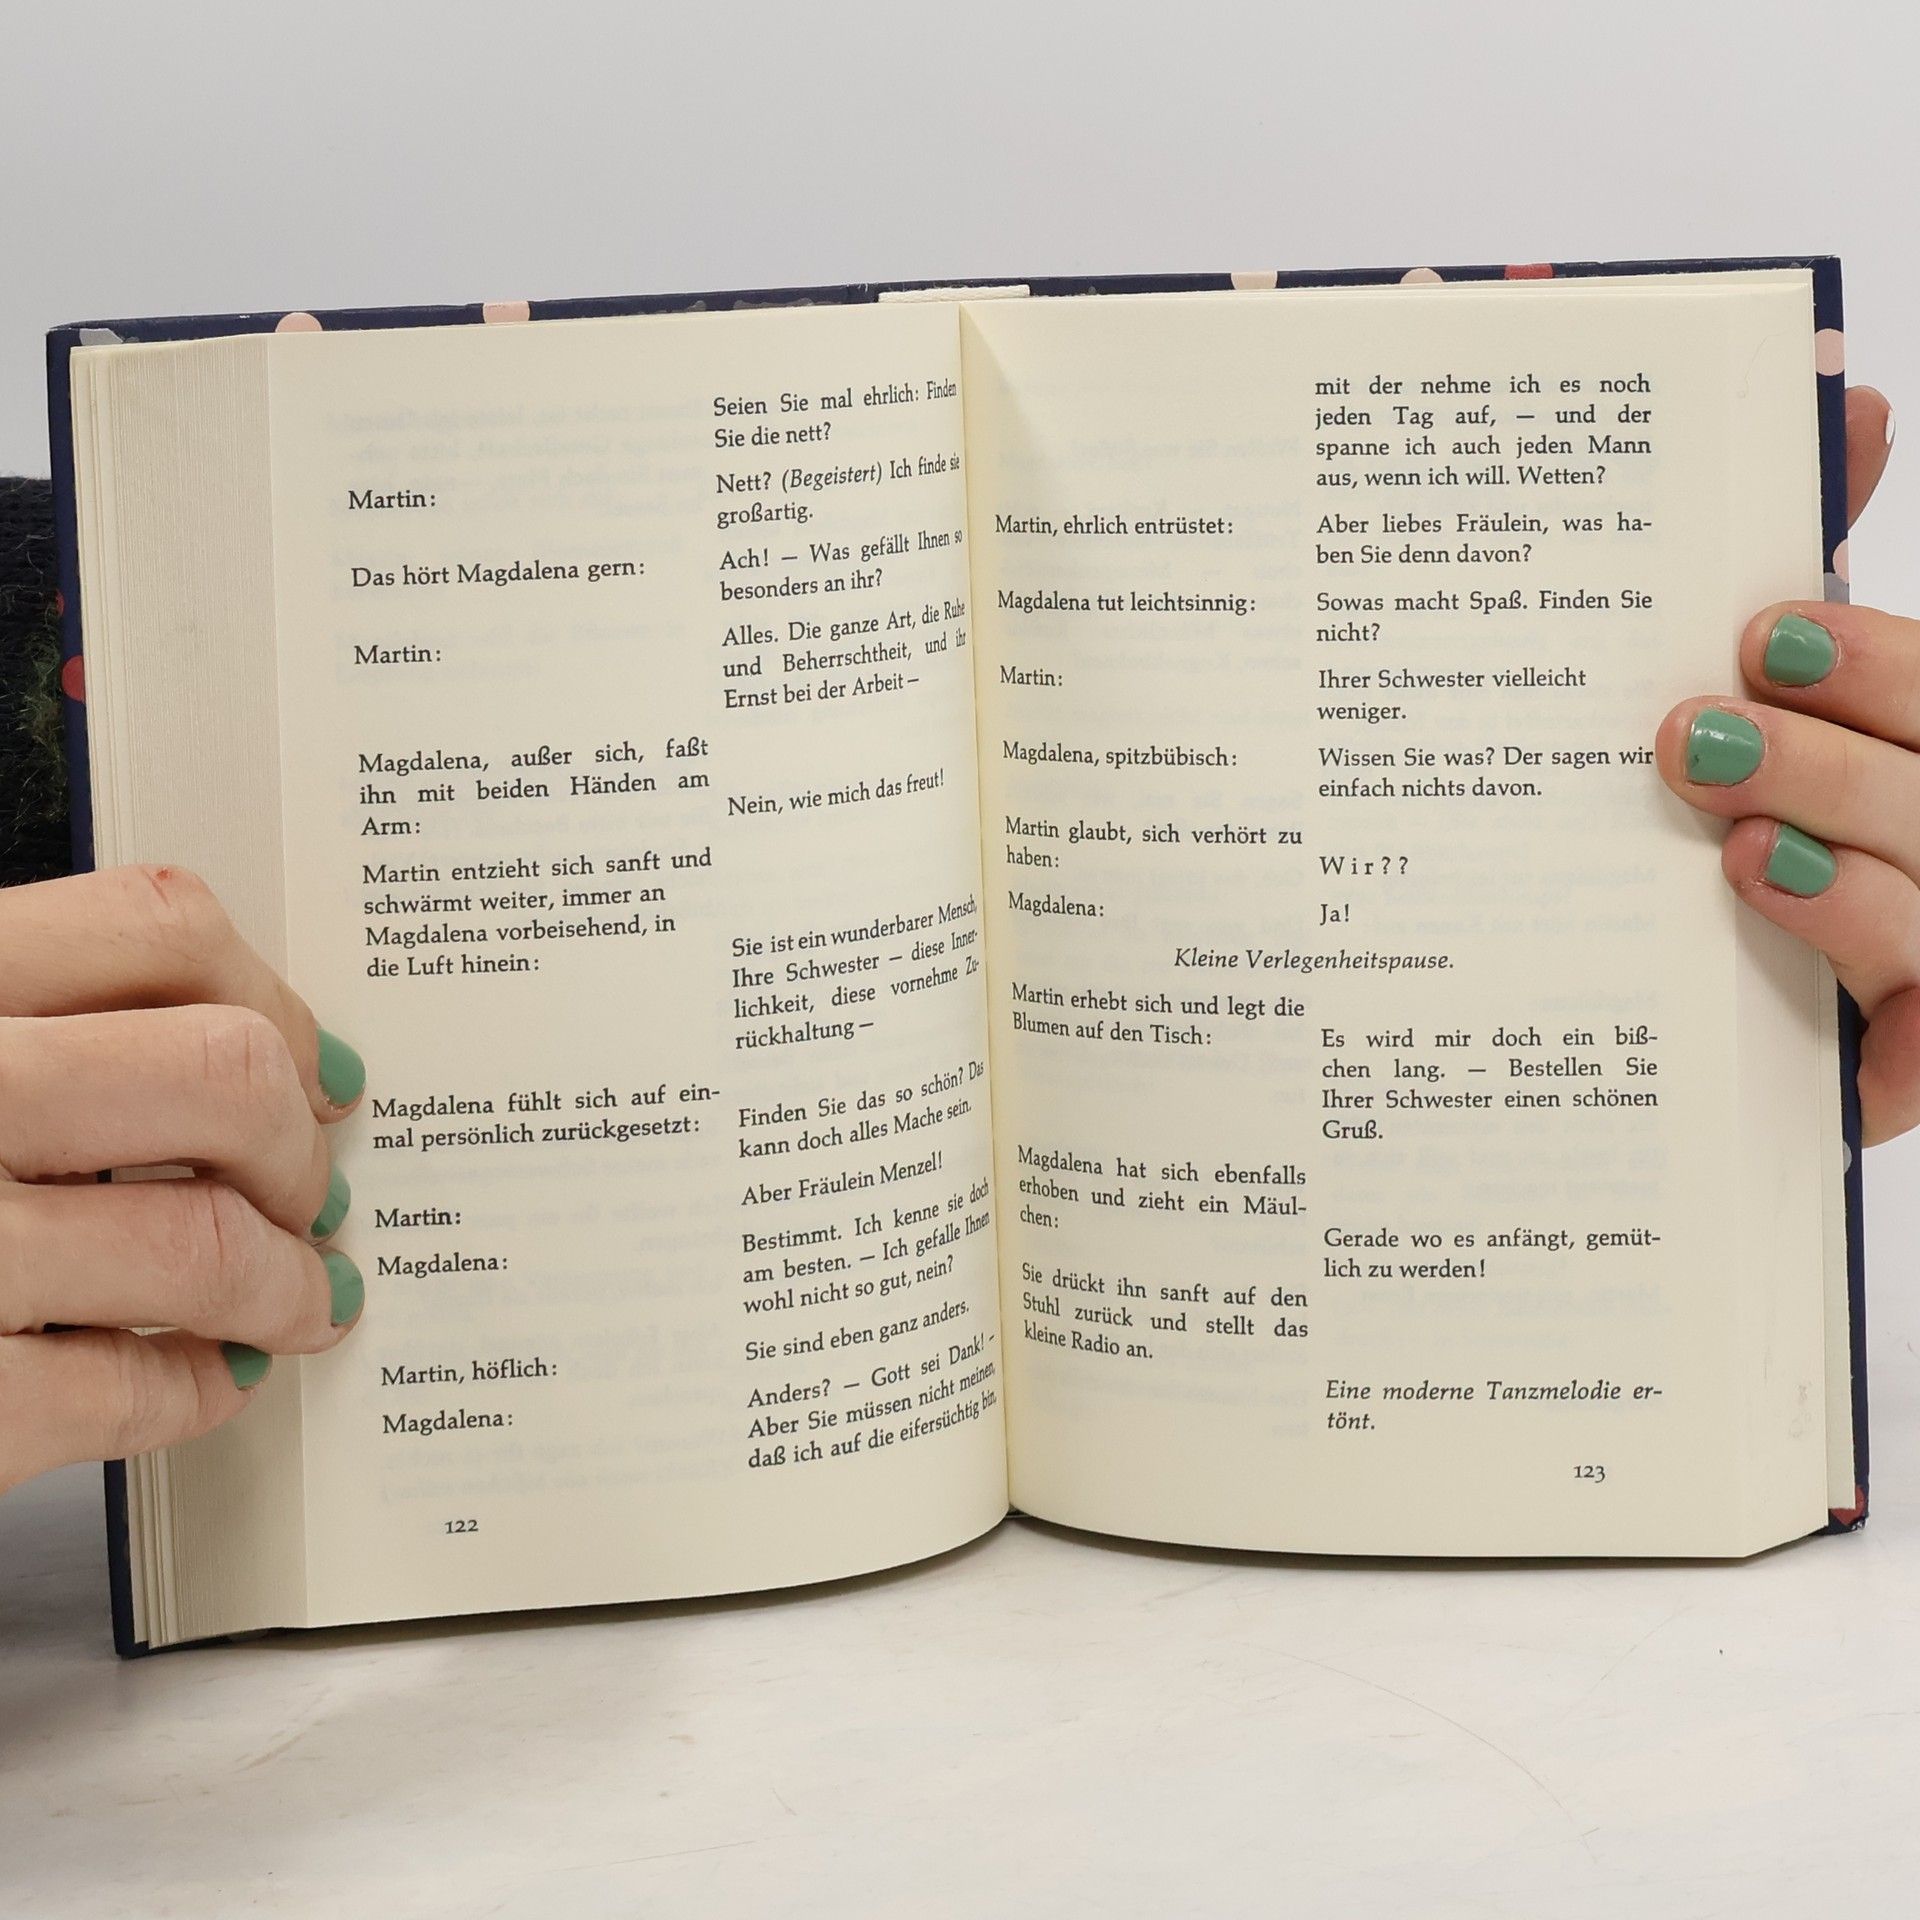 Seien Sie mal ehrlich: Finden
Sie die nett?
Martin:
Nett? (Begeistert) Ich finde sie
großartig.
Das hört Magdalena gern:
Ach! — Was gefällt Ihnen so
besonders an ihr?
Martin:
Alles. Die ganze Art, die Ruhe
und Beherrschtheit, und ihr
Ernst bei der Arbeit —
Magdalena, außer sich, faßt
ihn mit beiden Händen am
Arm:
Nein, wie mich das freut!
Martin entzieht sich sanft und
schwärmt weiter, immer an
Magdalena vorbeisehend, in
die Luft hinein:
Sie ist ein wunderbarer Mensch,
Ihre Schwester — diese Inner-
lichkeit, diese vornehme Zu-
rückhaltung —
Magdalena fühlt sich auf ein-
mal persönlich zurückgesetzt:
Finden Sie das so schön? Das
kann doch alles Mache sein.
Martin:
Aber Fräulein Menzel!
Magdalena:
Bestimmt. Ich kenne sie doch
am besten. — Ich gefalle Ihnen
wohl nicht so gut, nein?
Martin, höflich:
Sie sind eben ganz anders.
Magdalena:
Anders? — Gott sei Dank! —
Aber Sie müssen nicht meinen,
daß ich auf die eifersüchtig bin,
122
mit der nehme ich es noch
jeden Tag auf, — und der
spanne ich auch jeden Mann
aus, wenn ich will. Wetten?
Martin, ehrlich entrüstet:
Aber liebes Fräulein, was ha-
ben Sie denn davon?
Magdalena tut leichtsinnig:
Sowas macht Spaß. Finden Sie
nicht?
Martin:
Ihrer Schwester vielleicht
weniger.
Magdalena, spitzbübisch:
Wissen Sie was? Der sagen wir
einfach nichts davon.
Martin glaubt, sich verhört zu
haben:
Wir??
Magdalena:
Ja!
Kleine Verlegenheitspause.
Martin erhebt sich und legt die
Blumen auf den Tisch:
Es wird mir doch ein biß-
chen lang. — Bestellen Sie
Ihrer Schwester einen schönen
Gruß.
Magdalena hat sich ebenfalls
erhoben und zieht ein Mäul-
chen:
Gerade wo es anfängt, gemüt-
lich zu werden!
Sie drückt ihn sanft auf den
Stuhl zurück und stellt das
kleine Radio an.
Eine moderne Tanzmelodie er-
tönt.
123